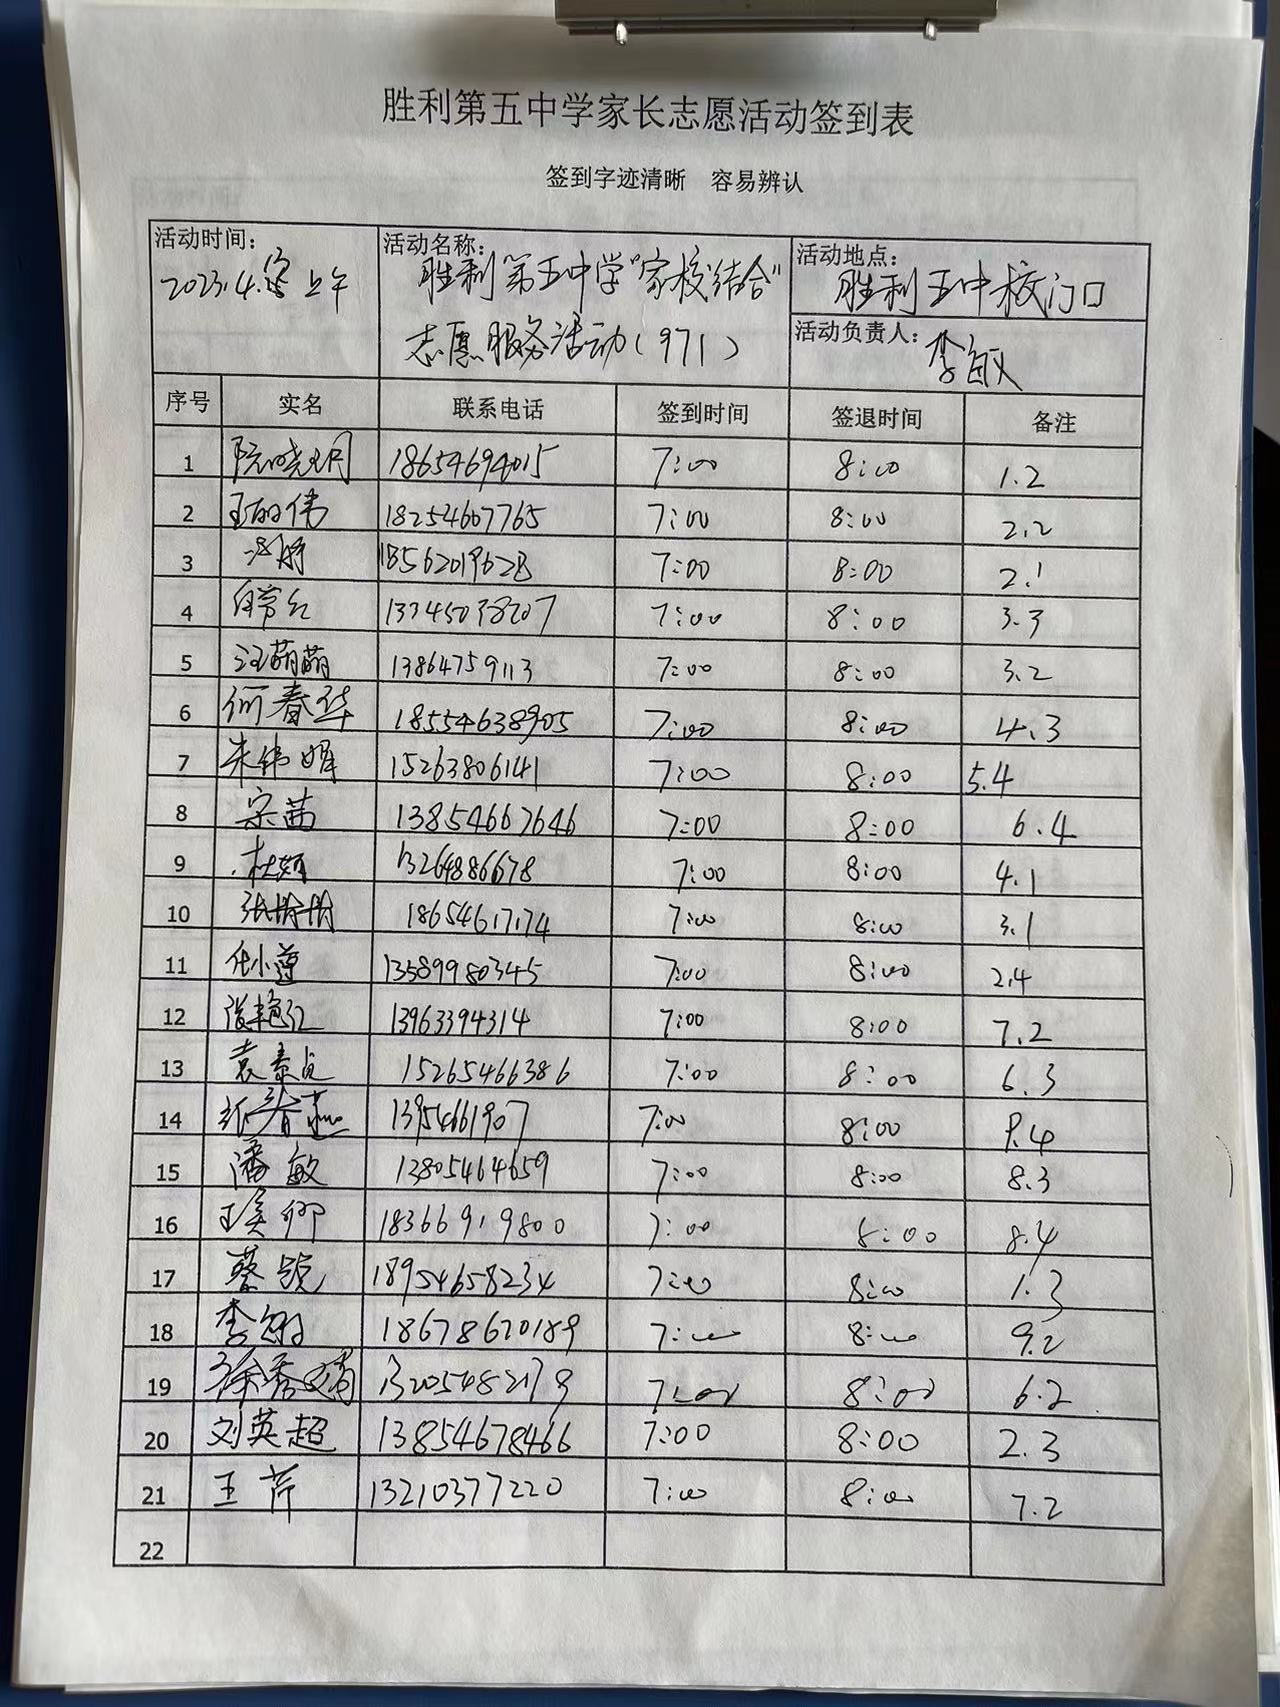 胜利第五中学家长志愿活动签到表
签到字迹清晰 容易辨认
活动时间： 活动名称： 活动地点：
2023.4. 上午 胜利第五中学"家校结合" 胜利五中校门口
志愿服务活动（971） 活动负责人： 李敏
序号 实名 联系电话 签到时间 签退时间 备注
1 18654694015 7:00 8:00 1.2
2 18254607765 7:00 8:00 2.2
3 18562019628 7:00 8:00 2.1
4 13345038207 7:00 8:00 3.3
5 汪萌萌 13864759113 7:00 8:00 3.2
6 何春华 18554638905 7:00 8:00 4.3
7 朱伟娟 15263806141 7:00 8:00 5.4
8 宋茜 13854667646 7:00 8:00 6.4
9 杜娟 13264886678 7:00 8:00 4.1
10 张怡怡 18654617174 7:00 8:00 3.1
11 任小莲 13589980345 7:00 8:00 2.4
12 张艳红 13963394314 7:00 8:00 7.2
13 袁素贞 15265466386 7:00 8:00 6.3
14 张春燕 13954661907 7:00 8:00 9.4
15 潘敏 13805464659 7:00 8:00 8.3
16 18366919800 7:00 8:00 8.4
17 蔡 18954658234 7:00 8:00 1.3
18 李 18678620189 7:00 8:00 9.2
19 徐秀娟 13205482179 7:00 8:00 6.2
20 刘英超 13854678466 7:00 8:00 2.3
21 王芹 13210377220 7:00 8:00 7.2
22